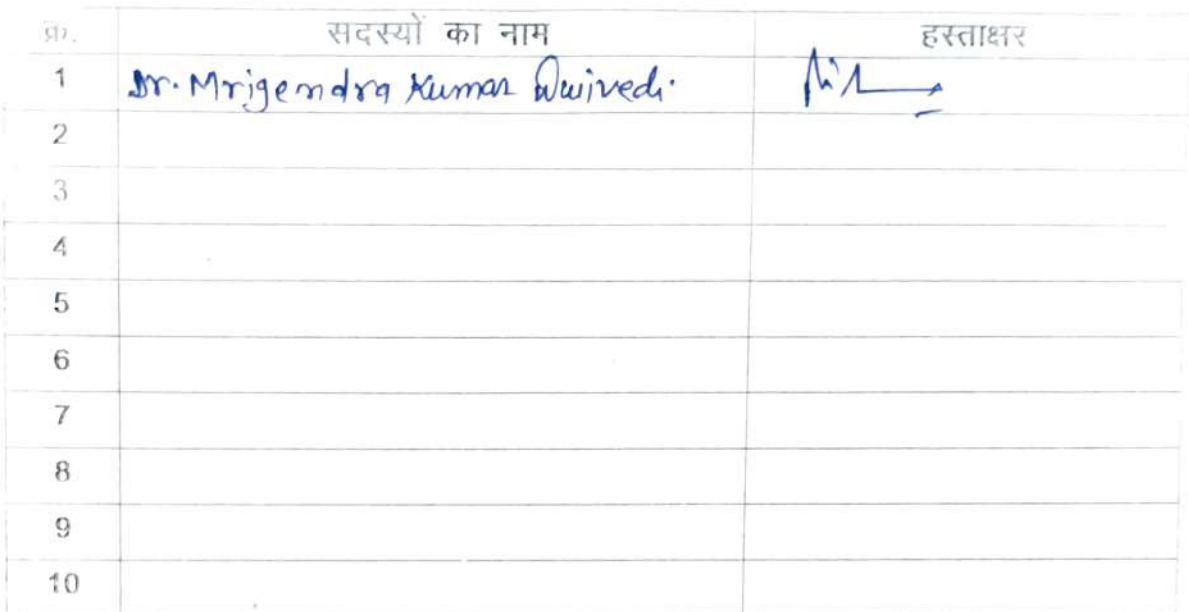 क्र. सदस्यों का नाम हस्ताक्षर
1 Dr. Mrigendra Kumar Dwivedi.
2
3
4
5
6
7
8
9
10